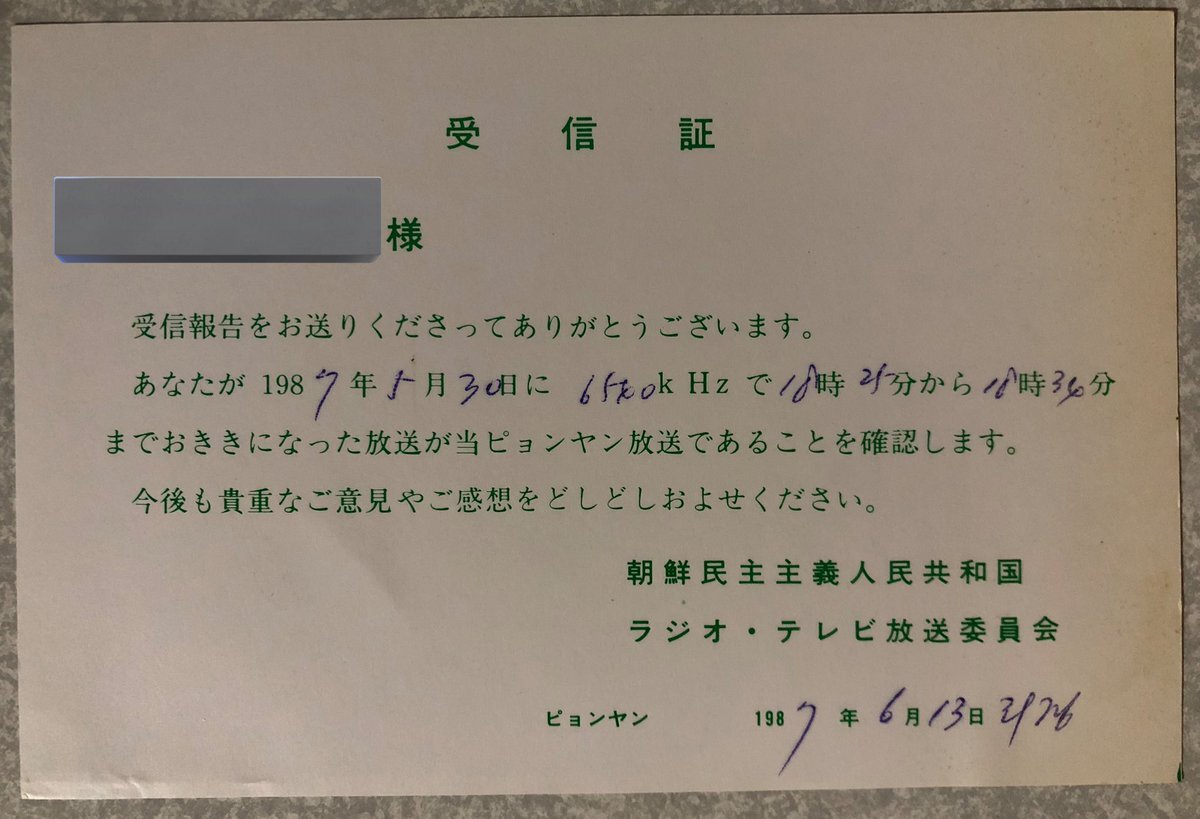 受信証
様
受信報告をお送りくださってありがとうございます。
あなたが 1987年5月30日に 6540kHzで18時25分から18時34分
までおききになった放送が当ピョンヤン放送であることを確認します。
今後も貴重なご意見やご感想をどしどしおよせください。
朝鮮民主主義人民共和国
ラジオ・テレビ放送委員会
ピョンヤン 1987年6月13日